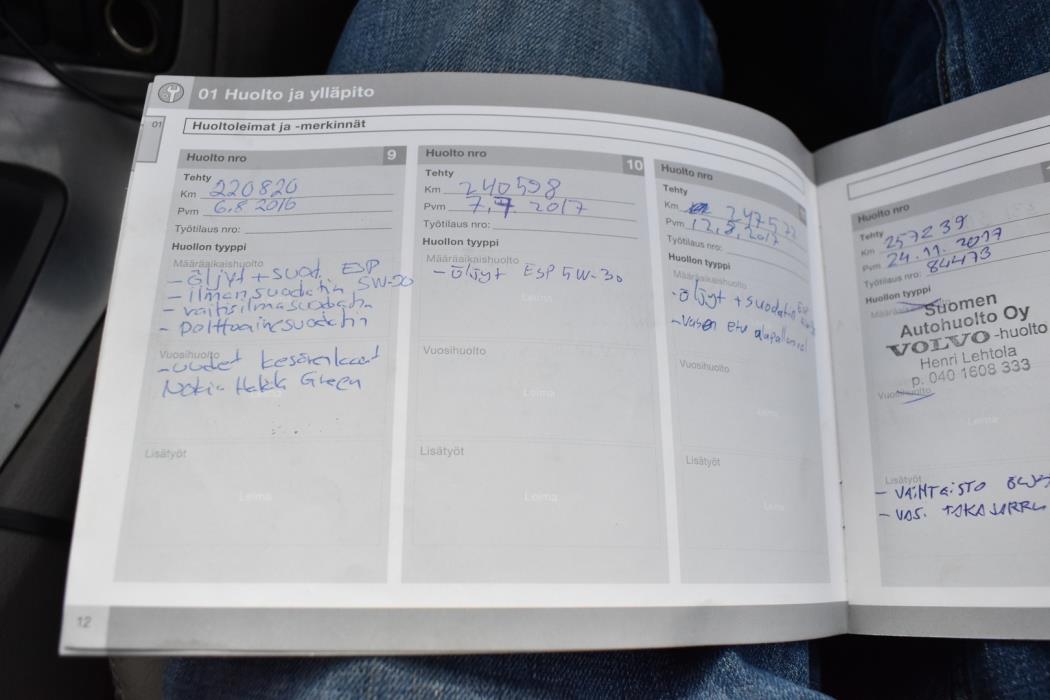 01 Huolto ja ylläpito
01
Huoltoleimat ja -merkinnät
Huolto nro 9
Tehty
Km 220820
Pvm 6.8 2016
Työtilaus nro:
Huollon tyyppi
Määräaikaishuolto
- öljyt + suod. ESP
5W-30
- ilmansuodatin
- raitisilmasuodatin
- polttoainesuodatin
Vuosihuolto
- uudet kesärenkaat
Nokia Hakk Green
Leima
Lisätyöt
Leima
Huolto nro 10
Tehty
Km 240598
Pvm 7.7 2017
Työtilaus nro:
Huollon tyyppi
Määräaikaishuolto
- öljyt ESP 5W-30
Leima
Vuosihuolto
Leima
Lisätyöt
Leima
Huolto nro
Tehty
Km
Pvm
Työtilaus nro:
Huollon tyyppi
Määräaikaishuolto
- öljyt + suodatin
- vasen etu
Vuosihuolto
Leima
Lisätyöt
Leima
12
Huolto nro
Tehty
Km 257239
Pvm 24.11.2017
Työtilaus nro: 84473
Huollon tyyppi
Suomen
Autohuolto Oy
VOLVO -huolto
Henri Lehtola
p. 040 1608 333
Vuosihuolto
Leima
Lisätyöt
- VAIHTEISTO
- VAS. TAKAJARRU